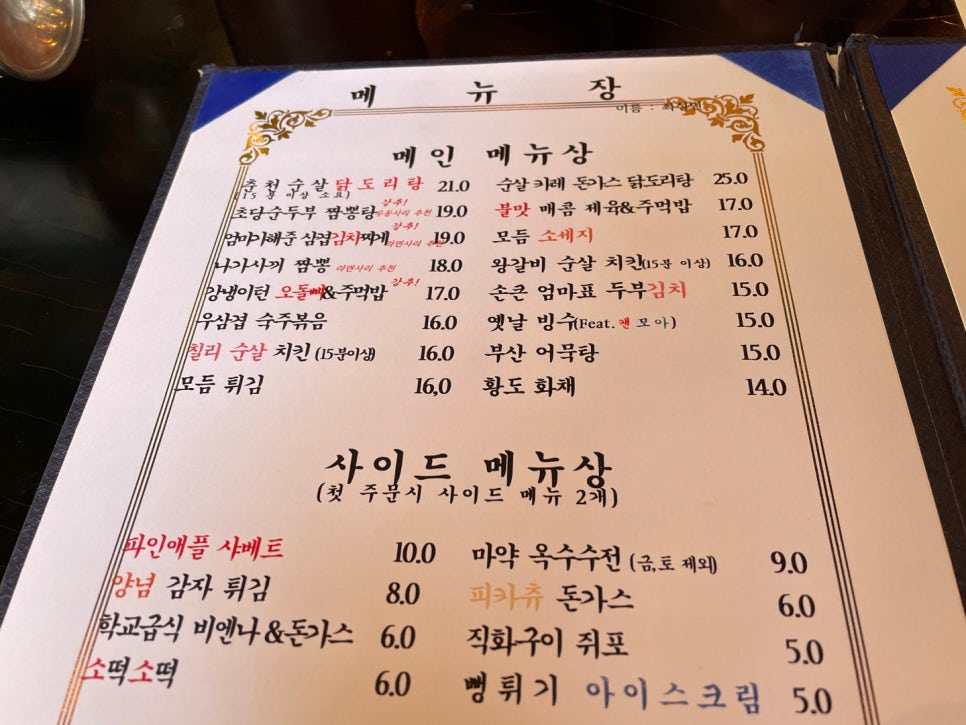 메 뉴 장
이름 :
메인 메뉴상
춘천 순살 닭도리탕 21.0
(15 분 이상 소요)
초당순두부 짬뽕탕 우동사리 추천 강추! 19.0
엄마가해준 삼겹김치찌개 라면사리 추천 강추! 19.0
나가사끼 짬뽕 라면사리 추천 18.0
강냉이턴 오돌뼈&주먹밥 강추! 17.0
우삼겹 숙주볶음 16.0
칠리 순살 치킨 (15분이상) 16.0
모듬 튀김 16,0
순살 카레 돈가스 닭도리탕 25.0
불맛 매콤 제육&주먹밥 17.0
모듬 소세지 17.0
왕갈비 순살 치킨(15분 이상) 16.0
손큰 엄마표 두부김치 15.0
옛날 빙수(Feat.캔모아) 15.0
부산 어묵탕 15.0
황도 화채 14.0
사이드 메뉴상
(첫 주문시 사이드 메뉴 2개)
파인애플 샤베트 10.0
양념 감자 튀김 8.0
학교급식 비엔나&돈가스 6.0
소떡소떡 6.0
마약 옥수수전 (금,토 제외) 9.0
피카츄 돈가스 6.0
직화구이 쥐포 5.0
뻥튀기 아이스크림 5.0